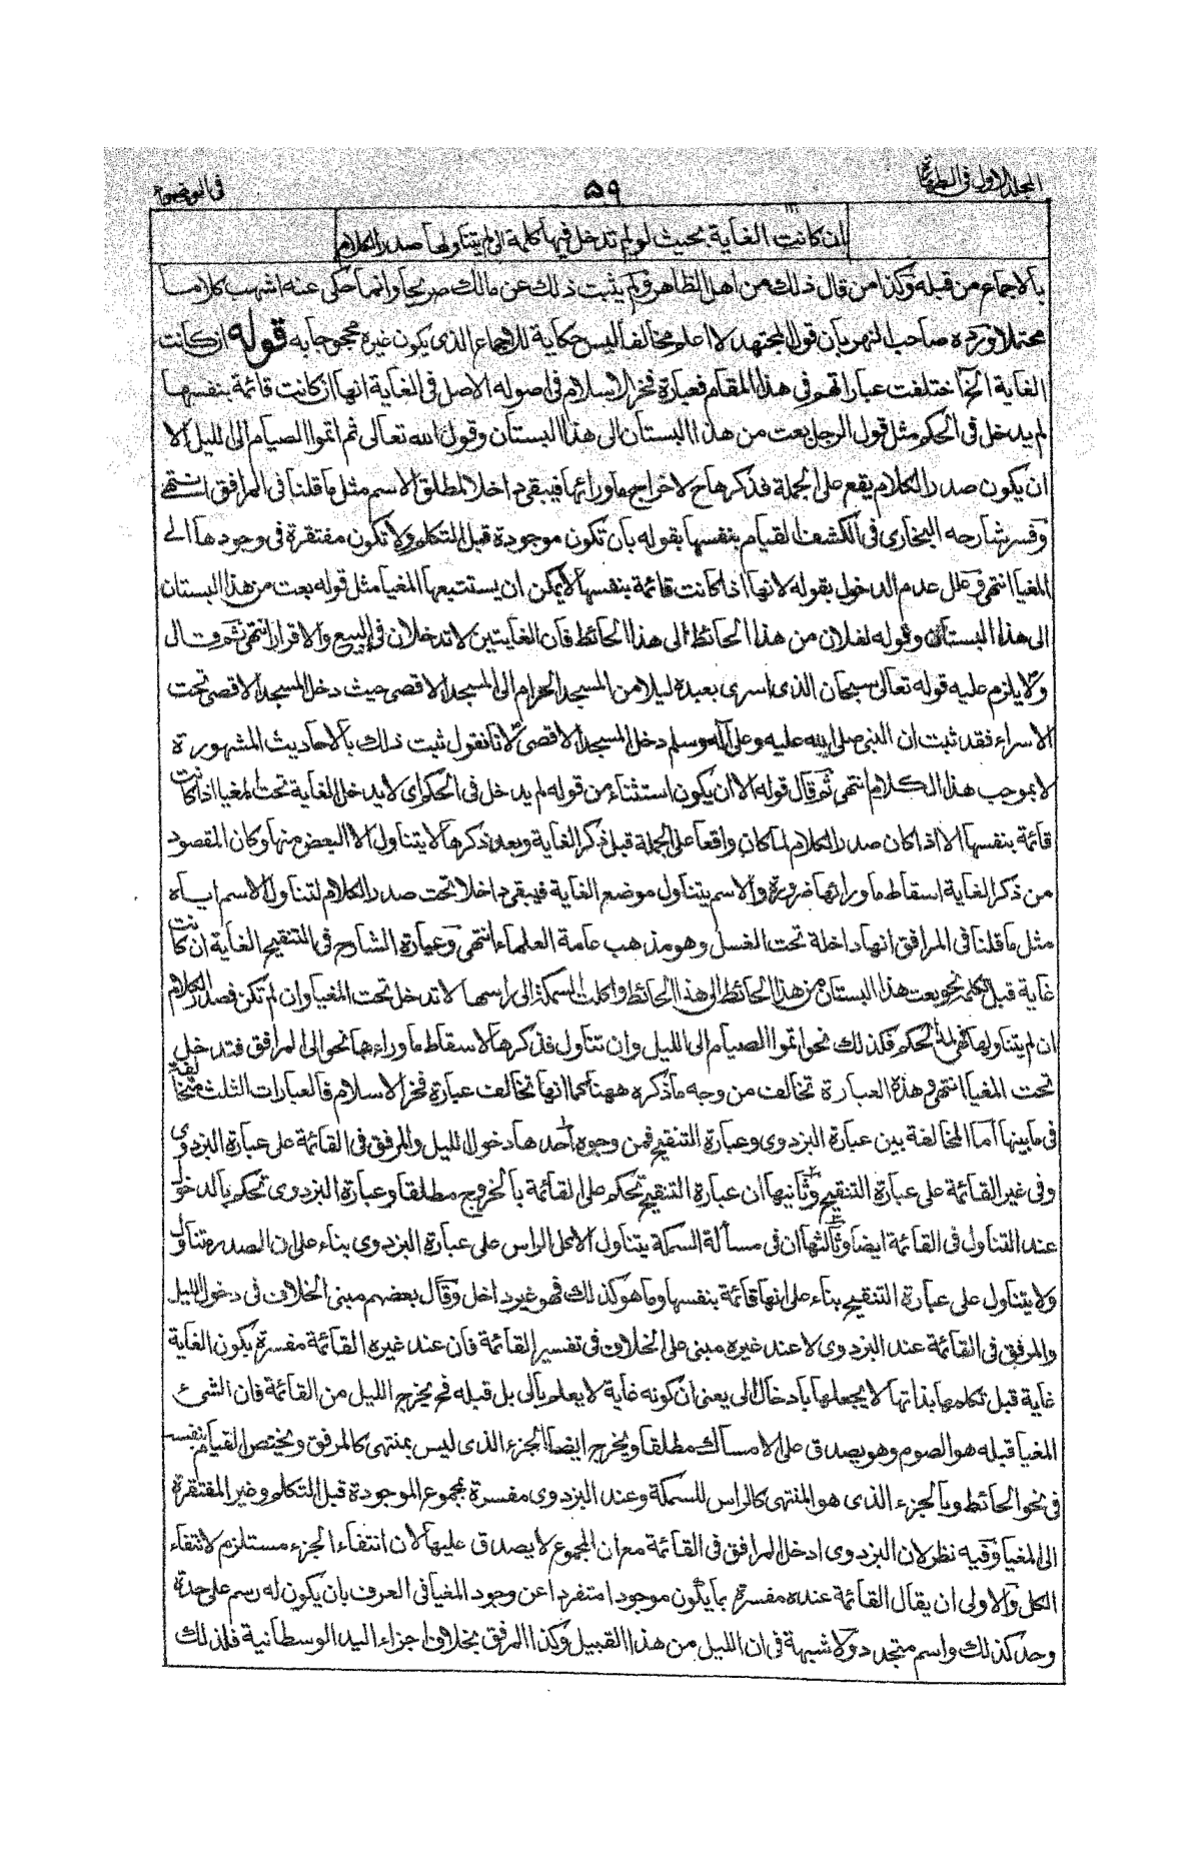 المجلد الاول فى الطهارة
۵۹
فى الوضوء
ان كانت الغاية بحيث لو لم تدخل فيها كلمة الى لم يتناولها صدر الكلام
بالاجماع من قبله وكذا من قال ذلك من اهل الظاهر ولم يثبت ذلك عن مالك صريحا وانما حكى عنه اشهب كلاما
محتملا ورده صاحب النهر بان قول المجتهد لا اعلم مخالفا ليس حكاية للاجماع الذى يكون غيره محجوجا به قوله ان كانت
الغاية الخ اختلفت عباراتهم فى هذا المقام فعبارة فخر الاسلام فى اصوله الاصل فى الغاية انها ان كانت قائمة بنفسها
لم يدخل فى الحكم مثل قول الرجل بعت من هذا البستان الى هذا البستان وقول الله تعالى ثم اتموا الصيام الى الليل الا
ان يكون صدر الكلام يقع على الجملة فذكرها ح لاخراج ما ورائها فيبقى داخلا لمطلق الاسم مثل ما قلنا فى المرافق انتهى
وفسر شارحه البخارى فى الكشف القيام بنفسها بقوله بان تكون موجودة قبل التكلم ولا تكون مفتقرة فى وجودها الى
المغيا انتهى وعلل عدم الدخول بقوله لانها اذا كانت قائمة بنفسها لا يمكن ان يستتبعها المغيا مثل قوله بعت من هذا البستان
الى هذا البستان وقوله لفلان من هذا الحائط الى هذا الحائط فان الغايتين لا تدخلان فى البيع والاقرار انتهى ثم قال
ولا يلزم عليه قوله تعالى سبحان الذى اسرى بعبده ليلا من المسجد الحرام الى المسجد الاقصى حيث دخل المسجد الاقصى تحت
الاسراء فقد ثبت ان النبى صلى الله عليه وعلى آله وسلم دخل المسجد الاقصى لانا نقول ثبت ذلك بالاحاديث المشهورة
لا بموجب هذا الكلام انتهى ثم قال قوله الا ان يكون استثناء من قوله لم يدخل فى الحكم اى لا يدخل الغاية تحت المغيا اذا كانت
قائمة بنفسها الا اذا كان صدر الكلام لما كان واقعا على الجملة قبل ذكر الغاية وبعد ذكرها لا يتناول الا البعض منها وكان المقصود
من ذكر الغاية اسقاط ما ورائها ضرورة والاسم يتناول موضع الغاية فيبقى داخلا تحت صدر الكلام لتناول الاسم اياه
مثل ما قلنا فى المرافق انها داخلة تحت الغسل وهو مذهب عامة العلماء انتهى وعبارة الشارح فى التنقيح الغاية ان كانت
غاية قبل تكلمه نحو بعت هذا البستان من هذا الحائط الى هذا الحائط واكلت السمكة الى راسها لا تدخل تحت المغيا وان لم تكن فصدر الكلام
ان لم يتناولها فهى لمد الحكم فكذلك نحو اتموا الصيام الى الليل وان تناول فذكرها لاسقاط ما وراءها نحو الى المرافق فتدخل
تحت المغيا انتهى وهذه العبارة تخالف من وجه ما ذكره ههنا كما انها تخالف عبارة فخر الاسلام فالعبارات الثلث متخالفة
فى ما بينها اما المخالفة بين عبارة البزدوى وعبارة التنقيح فمن وجوه احدها دخول الليل والمرفق فى القائمة على عبارة البزدوى
وفى غير القائمة على عبارة التنقيح وثانيها ان عبارة التنقيح تحكم على القائمة بالخروج مطلقا وعبارة البزدوى تحكم بالدخول
عند التناول فى القائمة ايضا وثالثها ان فى مسألة السمكة يتناول الاكل الراس على عبارة البزدوى بناء على ان الصدر متناول
ولا يتناول على عبارة التنقيح بناء على انها قائمة بنفسها وما هو كذلك فهو غير داخل وقال بعضهم مبنى الخلاف فى دخول الليل
والمرفق فى القائمة عند البزدوى لا عند غيره مبنى على الخلاف فى تفسير القائمة فان عند غيره القائمة مفسرة بكون الغاية
غاية قبل تكلمها بذاتها لا بجعلها بادخال الى يعنى ان كونه غاية لا يعلم بالى بل قبله فح يخرج الليل من القائمة فان الشئ
المغيا قبله هو الصوم وهو يصدق على الامساك مطلقا ويخرج ايضا الجزء الذى ليس بمنتهى كالمرفق ويختص القيام بنفسه
فى نحو الحائط وبالجزء الذى هو المنتهى كالراس للسمكة وعند البزدوى مفسرة بمجموع الموجودة قبل التكلم وغير المفتقرة
الى المغيا وفيه نظر لان البزدوى ادخل المرافق فى القائمة مع ان المجموع لا يصدق عليها لان انتفاء الجزء مستلزم لانتفاء
الكل والاولى ان يقال القائمة عنده مفسرة بما يكون موجودا متفردا عن وجود المغيا فى العرف بان يكون له رسم على حدة
وحد كذلك واسم متجدد ولا شبهة فى ان الليل من هذا القبيل وكذا المرفق بخلاف اجزاء اليد الوسطانية فلذلك